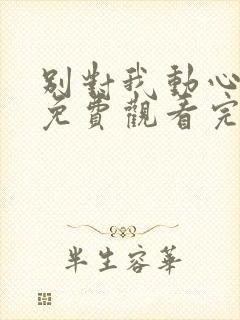 別對我動心
免費觀看完
半生容華